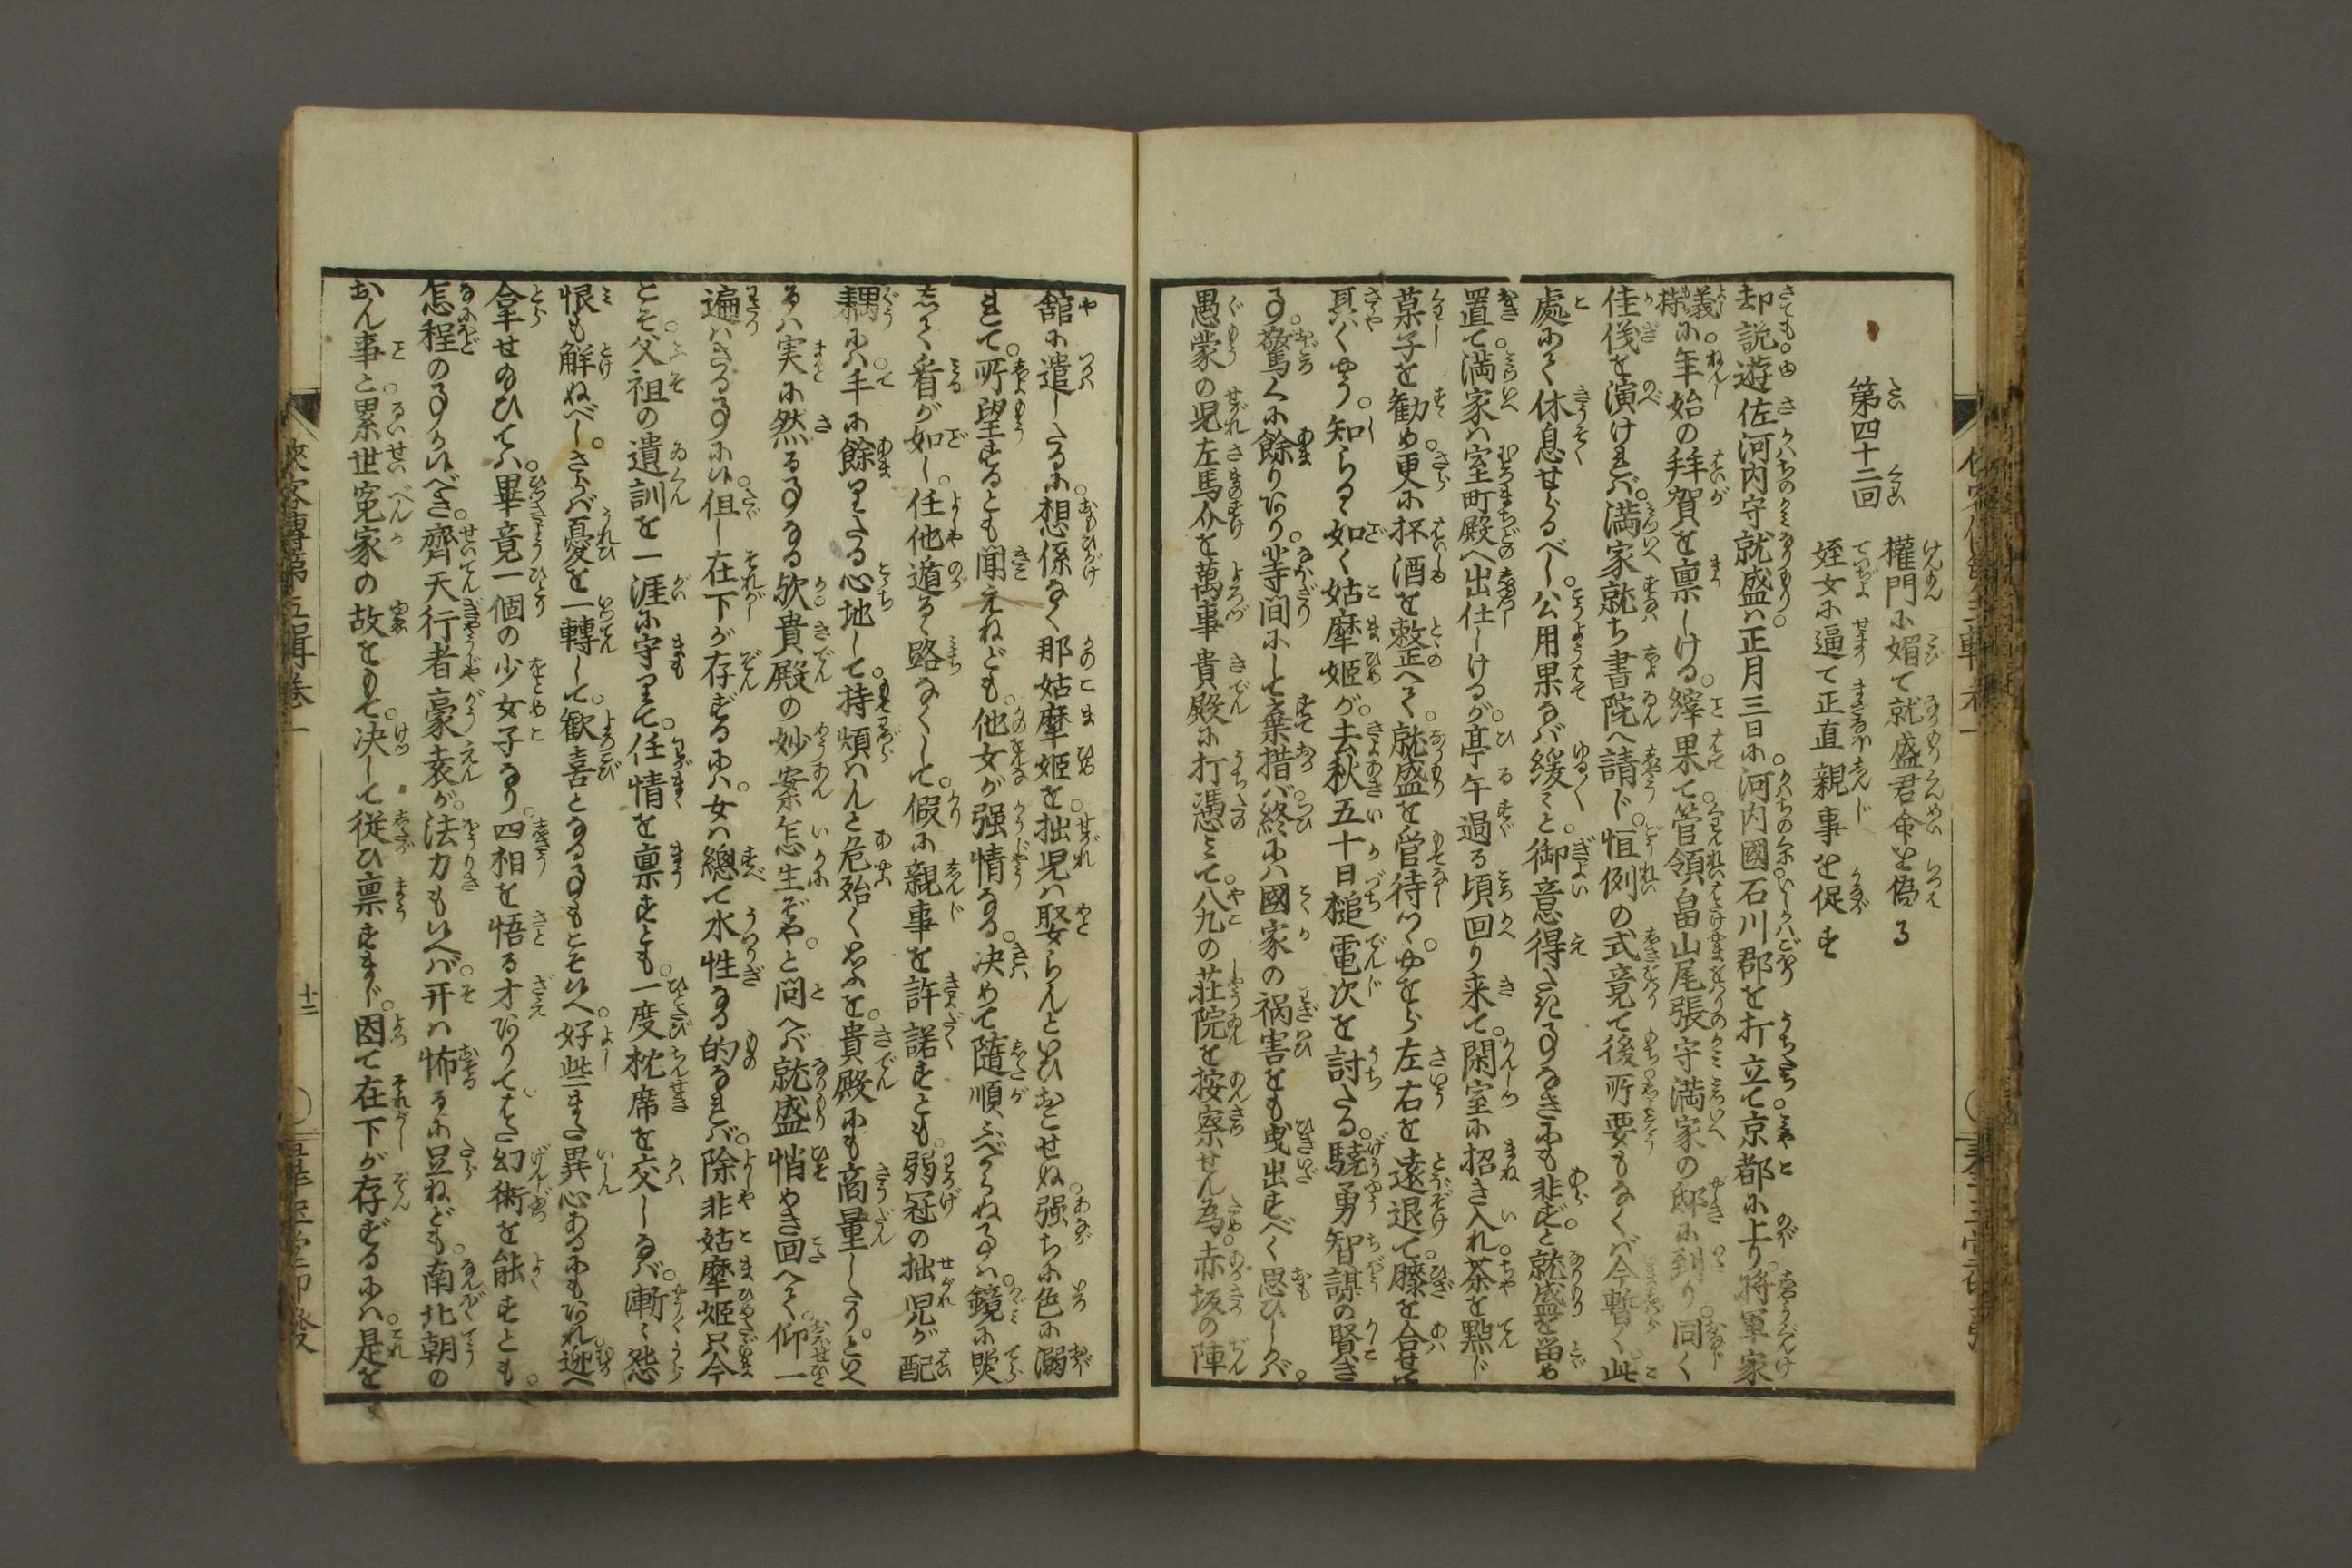 第四十二回
權門に媚て就盛君命を偽る
姪女に逼て正直親事を促す
却説遊佐河内守就盛は正月三日に。河内國石川郡を打立て京都に上り。將軍家
義持に。年始の拜賀を禀しける。縡果て。管領畠山尾張守満家の邸に到り。同く
佳儀を演ければ。満家就ち書院へ請ド。恒例の式竟て後。所要もなくば今暫く。此
處にて休息せらるべし。公用果なば緩々と。御意得たき事なきにも非ずと就盛を留め
置て。満家は室町殿へ出仕しけるが。亭午過る頃回り来て。閑室に招き入れ。茶を點じ
菓子を勧め。更に杯酒を整へて。就盛を管待つゝ。やをら左右を遠退て。膝を合せて
具くやう。知らるゝ如く姑摩姫が。去秋五十日槌電次を討たる。驍勇智謀の賢き
事。驚くに餘りあり。等间にして棄措ば。終には國家の禍害をも曵出すべく思ひしかば。
愚蒙の児左馬介を萬事貴殿に打憑みて。八九の莊院を按察せん為。赤坂の陣
舘に遣したるに。想係なく那姑摩姫を。拙児は娶らんといひおこせぬ。强ちに色に溺
れて。所望するとも聞えねども。他女が强情なる。决めて隨順ふべからぬ事は。鏡に照
して看が如し。任他遁るゝ路なくして。假に親事を許諾すとも。弱冠の拙児が配
耦には。手に餘りたる心地して。持煩はんと危殆く思ふを。貴殿にも商量したり。といへ
るは実に然る事なる欤。貴殿の妙案怎生ぞや。と問へば就盛悄やき回へて。仰一
遍はさる事に候。但し在下が存ずるには。女は總て水性なる的なれば。除非姑摩姫只今
こそ。父祖の遺訓を一涯に守りて。任情を禀すとも。一度枕席を交しなば。漸々怨
恨も解ぬべし。さらば憂を一轉して。歓喜となる事もこそ候へ。好些また異心あるにもあれ。迯へ
拿せ給ひては。畢竟一個の少女子なり。四相を悟る才ありて。はた幻術を能すとも。
怎程の事か候べき。齊天行者豪袁が。法力も候へば。开は怖るゝに足ねども。南北朝の
おん事と。累世寃家の故をもて。决して従ひ禀すまじ。因て在下が存ずるには。是をこそ
侠客傳第五輯巻一
十二